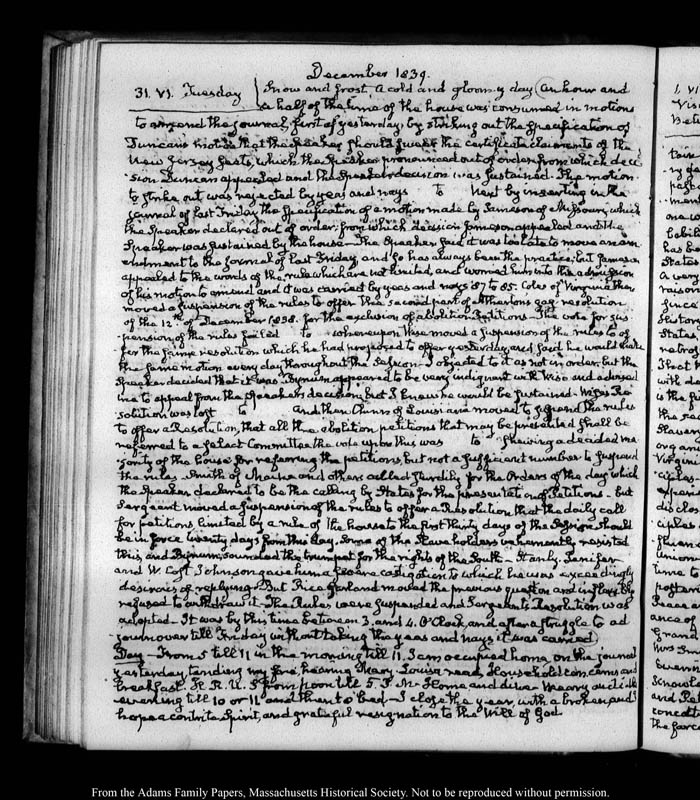 December 1839.
31. VI. Tuesday Snow and frost. A cold and gloomy day. An hour and
a half of the time of the house was consumed in motions
to amend the journal, first of yesterday, by striking out the specification of
Duncan's motion that the Speaker should the certificate claimants of the
New Jersey Seats, which the Speaker pronounced out of order, from which deci-
sion Duncan appealed and the Speaker's decision was sustained. The motion
to strike out was rejected by yeas and nays to Next by inserting in the
journal of last Friday the specification of a motion made by Jameson of Missouri, which
the Speaker declared out of order, from which decision Jameson appealed and the
Speaker was sustained by the house. The Speaker said it was too late to move an am-
endment to the Journal of last Friday, and so has always been the practice, but Jameson
appealed to the words of the rule which are not limited, and wormed him into the admission
of his motion to amend and it was carried by yeas and nays 87 to 85. Coles of Virginia then
moved a suspension of the rules to offer the second part of Atherton's gag resolution
of the 12th of December 1838. for the exclusion of abolition Petitions. The vote for sus-
pension of the rules failed to whereupon Wise moved a suspension of the rules to of-
fer the same resolution which he had proposed to offer yesterday, and said he would make
the same motion every day throughout the Session. I objected to it as not in order, but the
Speaker decided that it was. Bynum appeared to be very indignant with Wise and advised
me to appeal from the Speaker's decision, but I knew he would be sustained. Wise's Re-
solution was lost to And then Chinn of Louisiana moved to suspend the rules
to offer a Resolution, that all the abolition petitions that may be presented shall be
referred to a select Committee. the vote upon this was to shewing a decided ma-
jority of the house for referring the petitions, but not a sufficient number to suspend
the rules. Smith of Maine and others called for the Orders of the day which
the Speaker declared to be the calling by States for the presentation of Petitions. but
Sergeant moved a suspension of the rules to offer a Resolution that the daily call
for petitions, limited by a rule of the house to the first thirty days of the Session should
be in force twenty days from this day. Some of the Slave holders vehemently resisted
this, and Bynum, sounded the trumpet for the rights of the South. Stanly, Jenifer
and W. Cost Johnson gave him severe castigation to which he was exceedingly
desirous of replying. But Rice Garland moved the previous question and inflexibly
refused to withdraw it. The Rules were suspended and Sergeant's Resolution was
adopted. It was by this time between 3. and 4. O'Clock, and after a struggle to ad-
journ over till Friday without taking the yeas and nays it was carried.
Day. From 5 till 11 in the morning till 11. I am occupied home, on the journal
yesterday, tending my fire, hearing Mary-Louisa read, Household concerns and
breakfast. H. R. U. S from noon till 5. P. M. Home and dine. Weary and idle
evening till 10 or 11 and then to bed. I close the year, with a broken, and I
hope a contrite Spirit, and grateful resignation to the Will of God.
From the Adams Family Papers, Massachusetts Historical Society. Not to be reproduced without permission.